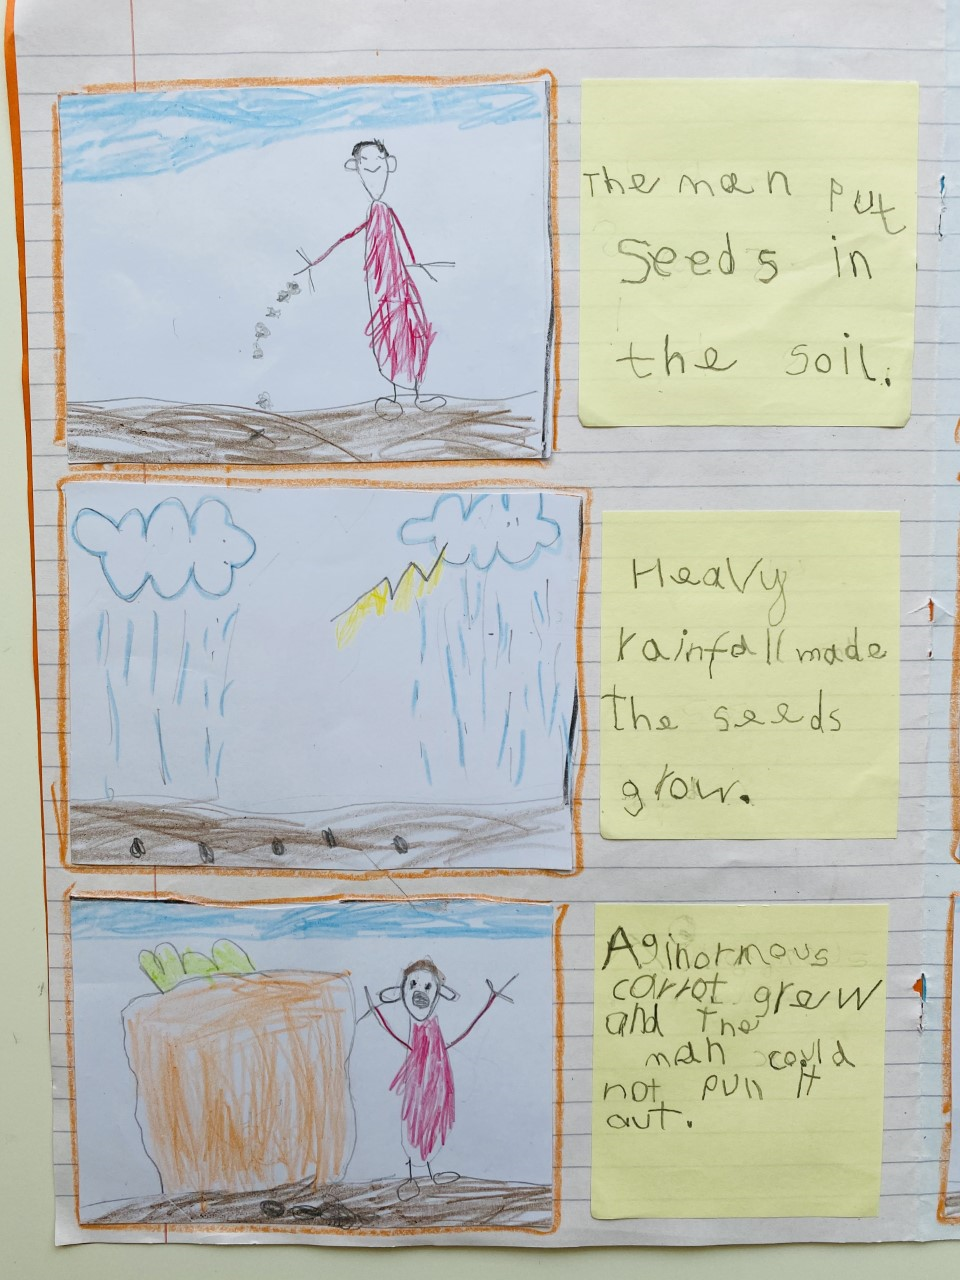 The man put
seeds in
the soil.
Heavy
rainfall made
The seeds
grow.
A ginormous
carrot grew
and The
man could
not pull it
out.